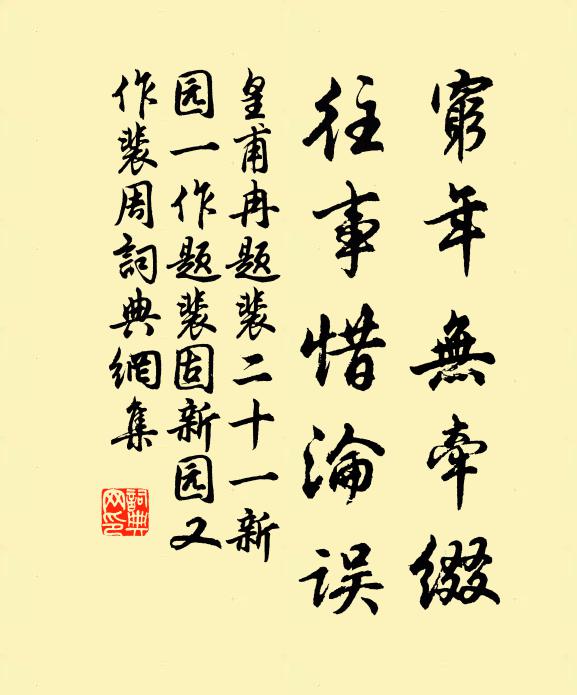 窮年無牽綴
往事惜淪誤
皇甫冉題裴二十一新
园一作题裴固新园又
作裴周詞典網集
詞典网印